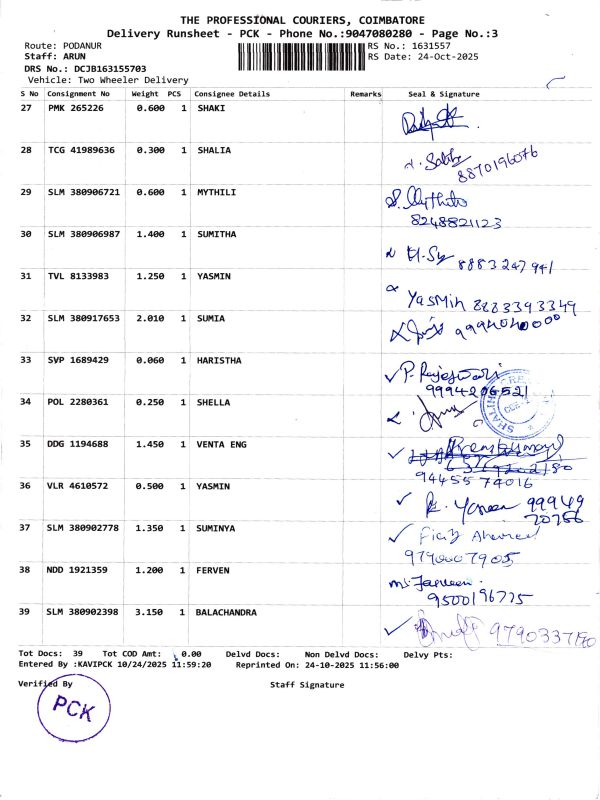 THE PROFESSIONAL COURIERS, COIMBATORE
Delivery Runsheet - PCK - Phone No.:9047080280 - Page No.:3
Route: PODANUR RS No.: 1631557
Staff: ARUN RS Date: 24-Oct-2025
DRS No.: DCJB163155703
Vehicle: Two Wheeler Delivery
S No Consignment No Weight PCS Consignee Details Remarks Seal & Signature
27 PMK 265226 0.600 1 SHAKI
28 TCG 41989636 0.300 1 SHALIA
8870196076
29 SLM 380906721 0.600 1 MYTHILI
S. Mythili
8248821123
30 SLM 380906987 1.400 1 SUMITHA
8883247941
31 TVL 8133983 1.250 1 YASMIN
Yasmin 8883393349
32 SLM 380917653 2.010 1 SUMIA
33 SVP 1689429 0.060 1 HARISTHA
P. Rajeswari
9994206521
34 POL 2280361 0.250 1 SHELLA
35 DDG 1194688 1.450 1 VENTA ENG
9445574016
36 VLR 4610572 0.500 1 YASMIN
99949
70766
37 SLM 380902778 1.350 1 SUMINYA
9790007905
38 NDD 1921359 1.200 1 FERVEN
9500196775
39 SLM 380902398 3.150 1 BALACHANDRA
Tot Docs: 39 Tot COD Amt: 0.00 Delvd Docs: Non Delvd Docs: Delvy Pts:
Entered By :KAVIPCK 10/24/2025 11:59:20 Reprinted On: 24-10-2025 11:56:00
Verified By Staff Signature
PCK